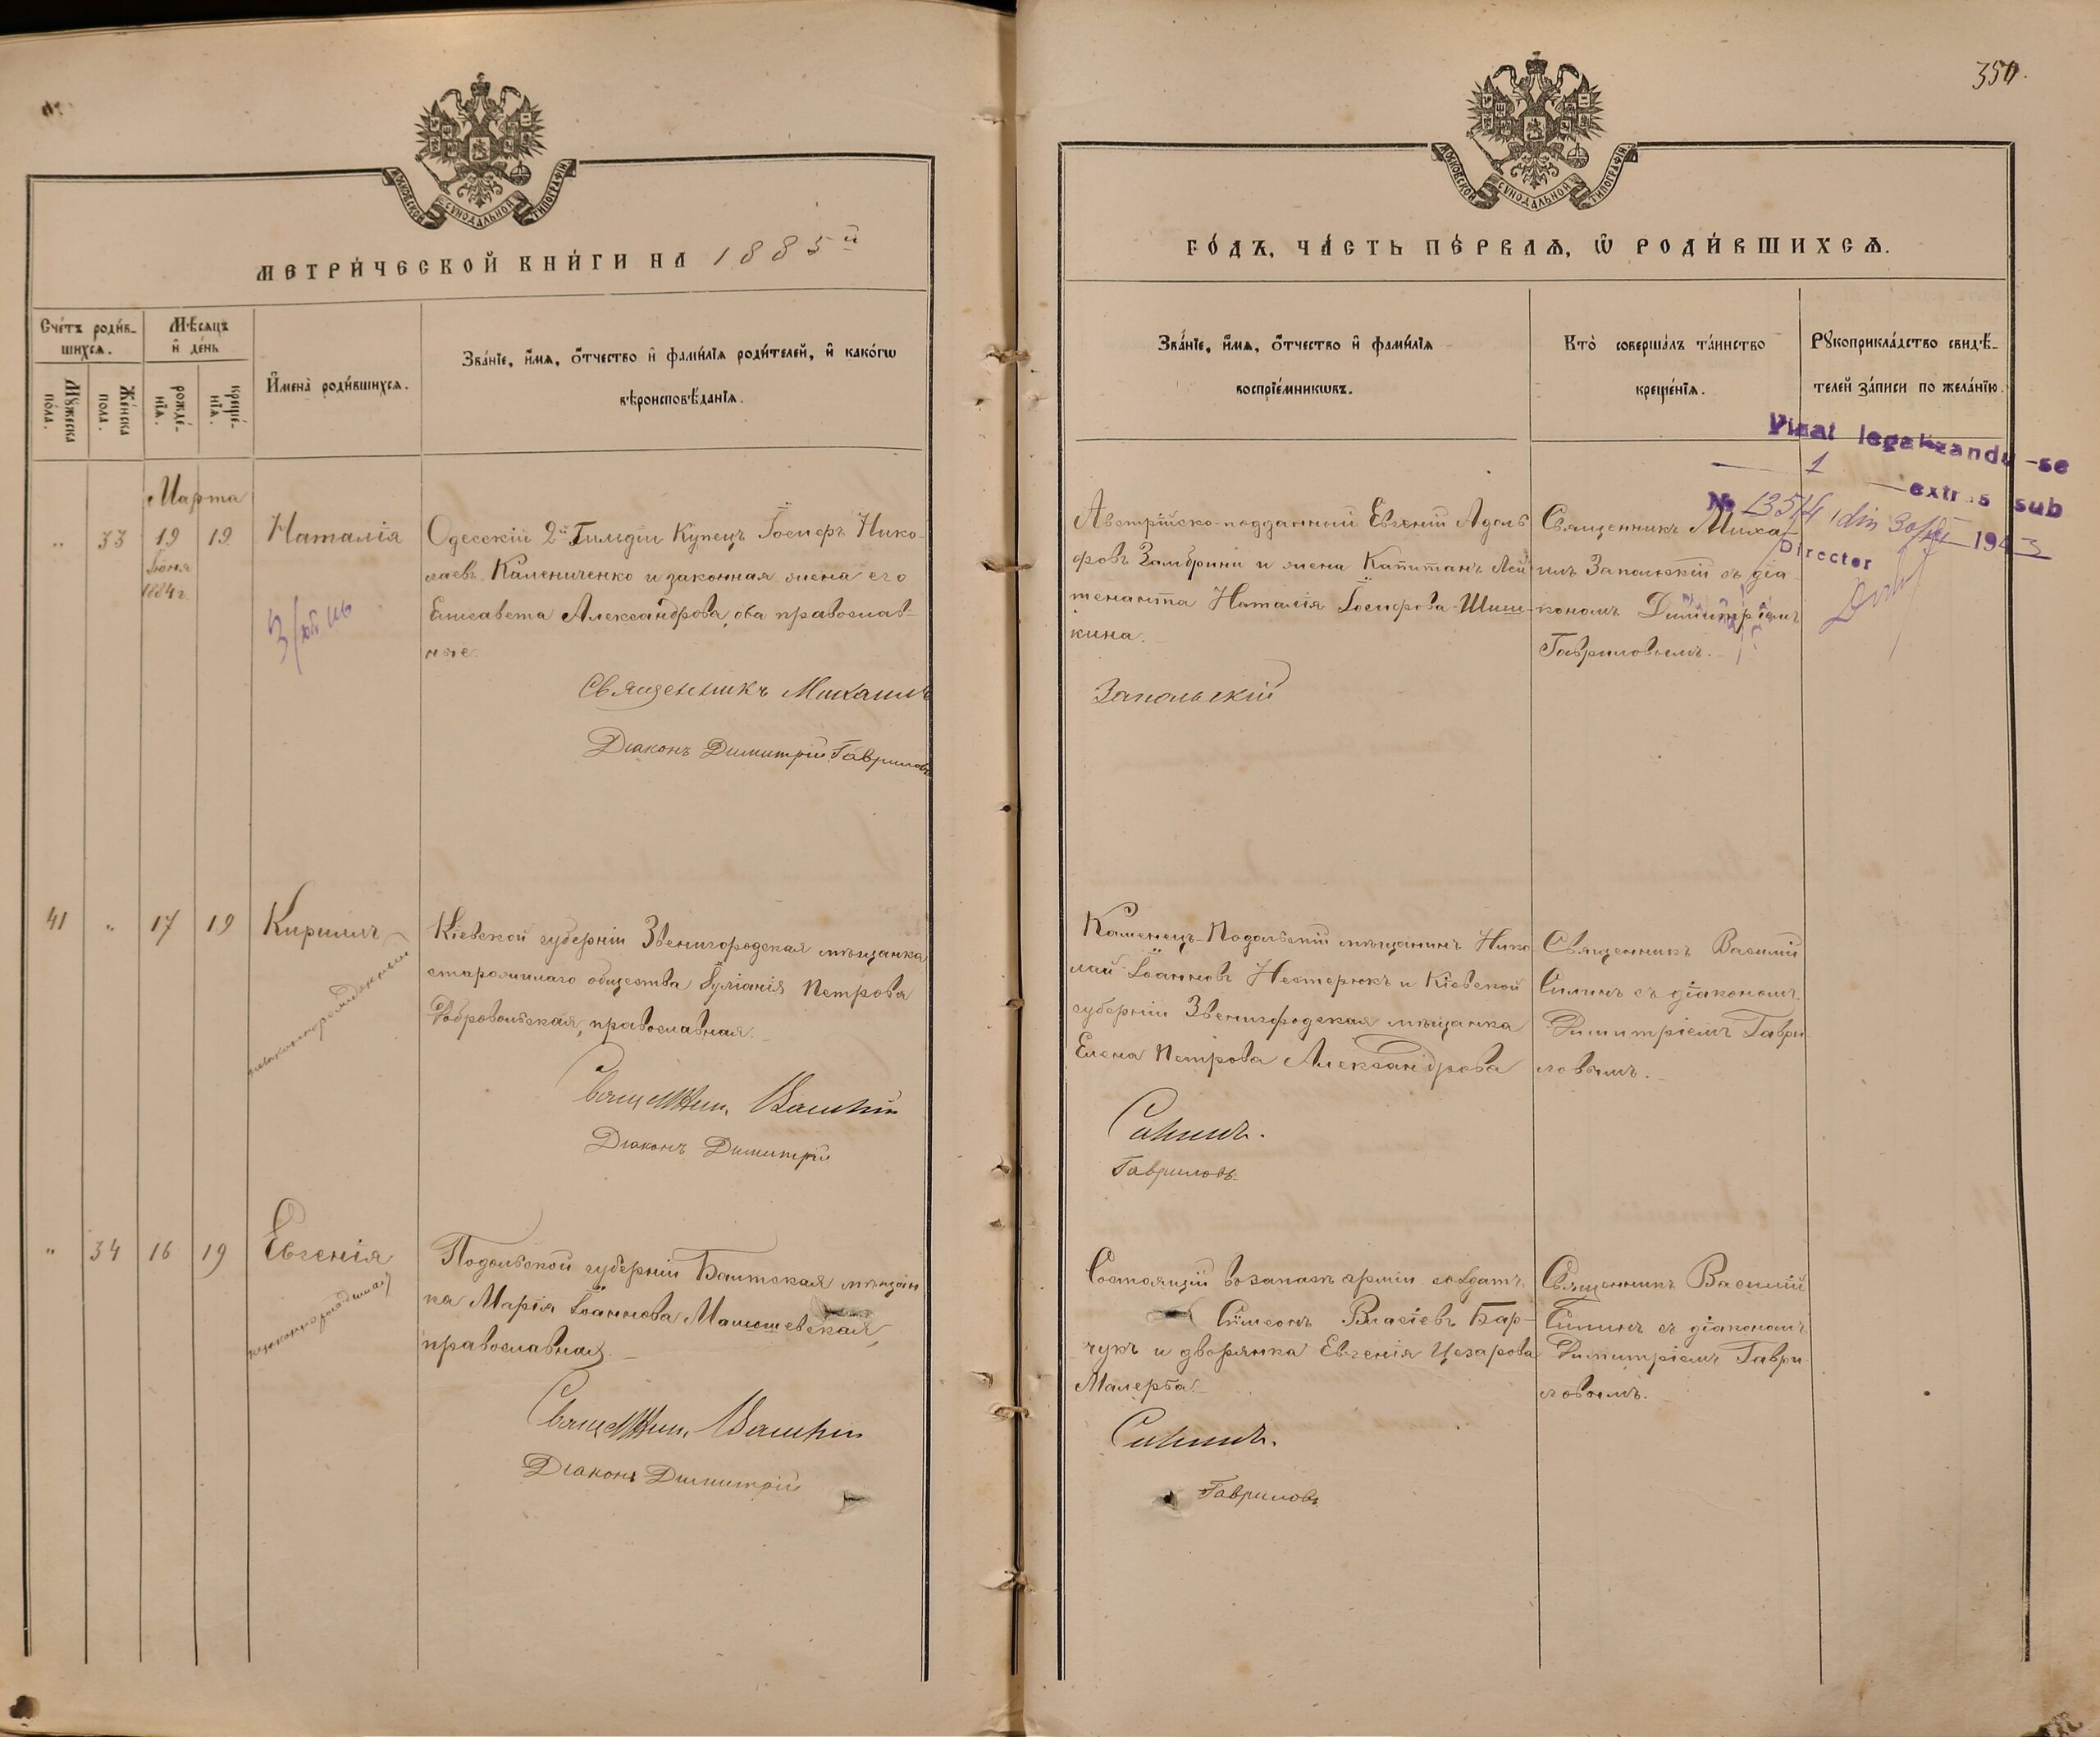 350.
МОСКОВСКОЙ СѴНОДАЛЬНОЙ ТИПОГРАФІИ
МОСКОВСКОЙ СѴНОДАЛЬНОЙ ТИПОГРАФІИ
МЕТРИ́ЧЕСКОЙ КНИ́ГИ НА 1885й
ГО́ДЪ, ЧА́СТЬ ПЕ́РВАѦ, Ѽ РОДИ́ВШИХСѦ.
Сче́тъ роди́в-
шихсѧ.
Мꙋ́жеска
пола.
Же́нска
пола.
Мѣ́сѧцъ
и҆ де́нь
рожде́-
нїѧ.
креще́-
нїѧ.
И҆мена̀ роди́вшихсѧ.
Зва́нїе, и҆́мѧ, ѻ҆́тчество и҆ фами́лїѧ роди́телей, и҆ како́гѡ
вѣроисповѣ́данїѧ.
Зва́нїе, и҆́мѧ, ѻ҆́тчество и҆ фами́лїѧ
воспрїе́мникѡвъ.
Кто̀ соверша́лъ та́инство
креще́нїѧ.
Рꙋкоприкла́дство свидѣ́-
телей за́писи по жела́нїю.
Vizat legalizandu-se
1 extras sub
№ 13514 din 30/ 1943
Director
Марта
" 33 19 19 Наталія
Іюня
1884 г.
Одесскій 2й Гильдіи Купецъ Іосифъ Нико-
лаевъ Калениченко и законная жена его
Елисавета Александрова, оба православ-
ные.
Священникъ Михаилъ
Діаконъ Димитрій Гавриловъ
Австрійско-подданный Евгеній Адоль
фовъ Замбрини и жена Капитанъ Лей
тенанта Наталія Іосифова Шиш-
кина.
Запольскій
Священникъ Миха-
илъ Запольскій съ діа-
кономъ Димитріемъ
Гавриловымъ.
41 " 17 19 Кириллъ
незаконнорожденный
Кіевской губерніи Звенигородская мѣщанка
старожилаго общества Іуліанія Петрова
Добровольская, православная.
Священникъ Василій
Діаконъ Димитрій
Каменецъ-Подольскій мѣщанинъ Нико
лай Іоанновъ Нестерюкъ и Кіевской
губерніи Звенигородская мѣщанка
Елена Петрова Александрова
Силинъ.
Гавриловъ.
Священникъ Василій
Силинъ съ діакономъ
Димитріемъ Гаври
ловымъ.
" 34 16 19 Евгенія
незаконнорожденная
Подольской губерніи Балтская мѣщан
ка Марія Іоаннова Малишевская,
православная.
Священникъ Василій
Діаконъ Димитрій
Состоящій въ запасѣ арміи солдатъ
Сѵмеонъ Власіевъ Бар-
чукъ и дворянка Евгенія Цезарова
Малерба.
Силинъ.
Гавриловъ
Священникъ Василій
Силинъ съ діакономъ
Димитріемъ Гаври-
ловымъ.